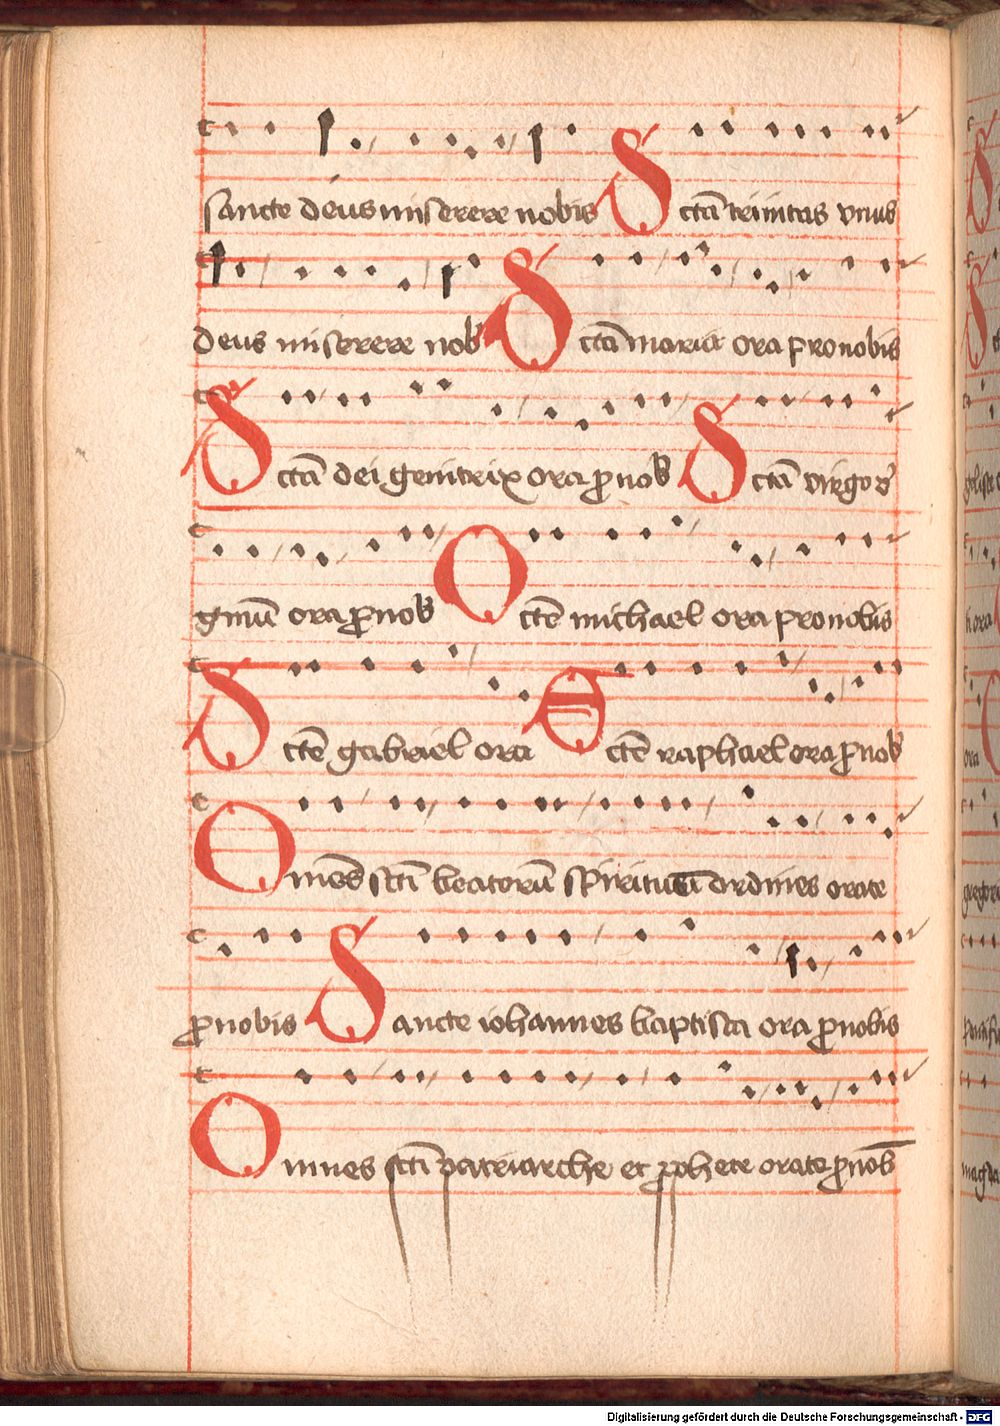 sancte deus miserere nobis Sctā trinitas vnus
deus miserere nob Sctā maria ora pro nobis
Sctā dei genitrix ora ꝓ nob Sctā virgo v
ginū ora ꝓ nob Sctē michael ora pro nobis
Sctē gabriel ora Sctē raphael ora ꝓ nob
Omēs sctī beatorū spirituū ordines orate
ꝓ nobis Sancte iohannes baptista ora ꝓ nobis
Omnes sctī patriarche et ꝓphete orate ꝓ nob
Digitalisierung gefördert durch die Deutsche Forschungsgemeinschaft - DFG